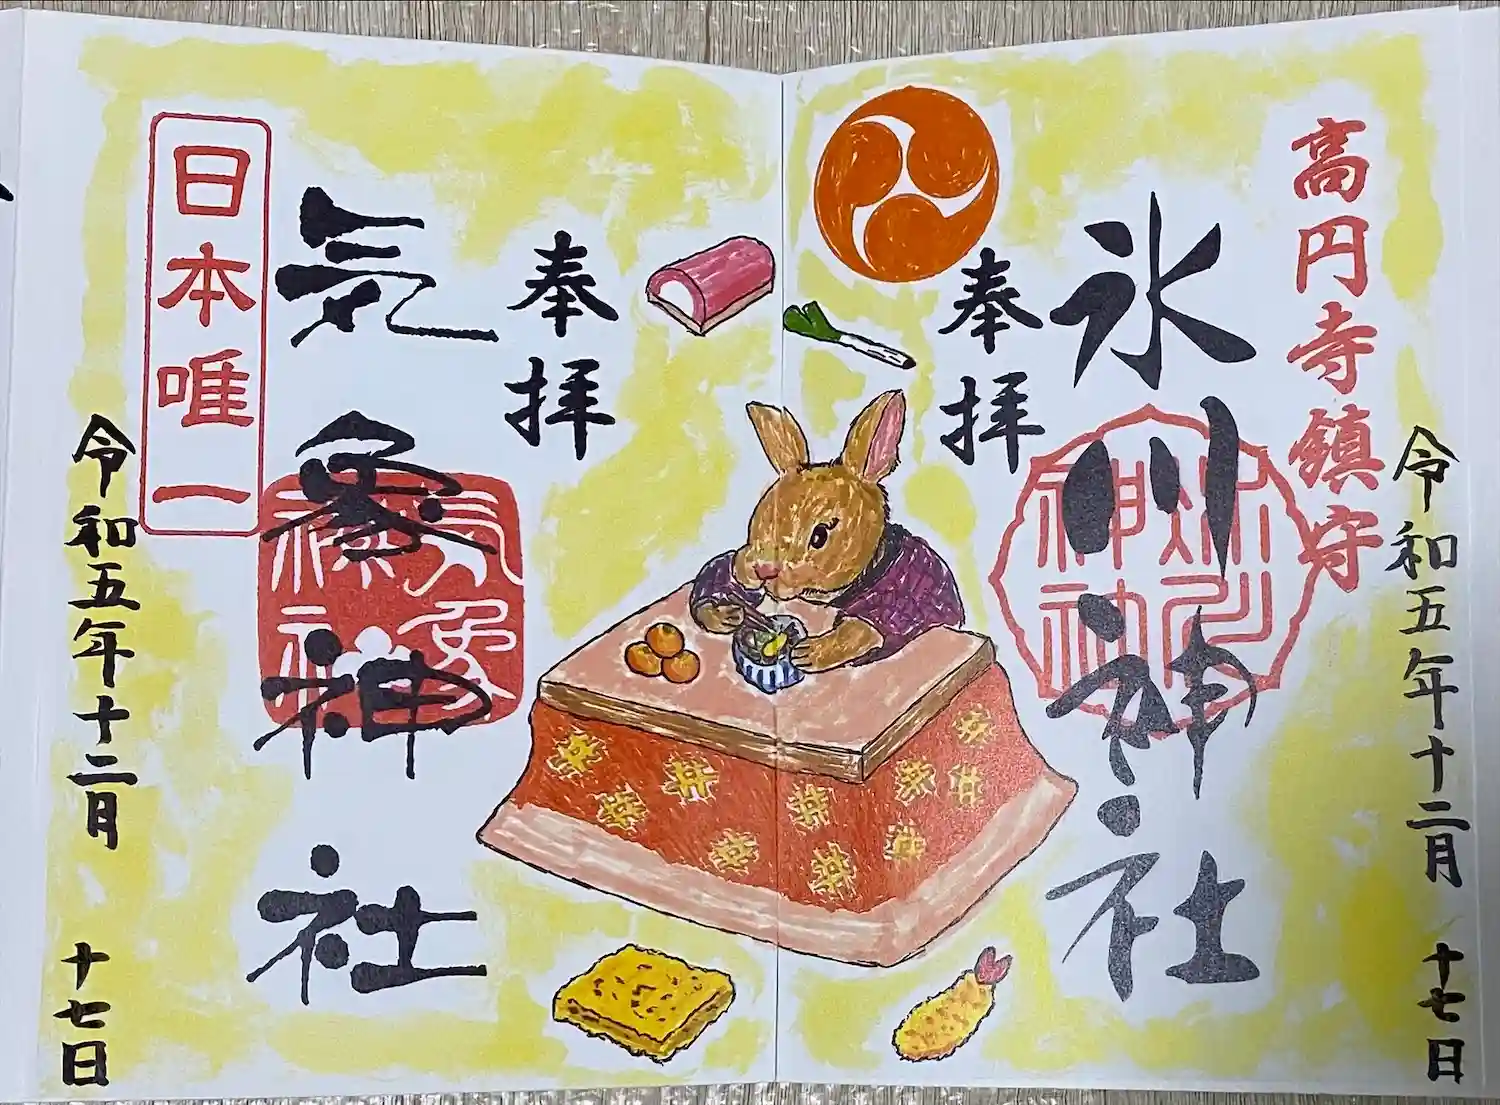 高円寺鎮守
氷川神社
奉拝
令和五年十二月 十七日
奉拝
気象神社
日本唯一
令和五年十二月 十七日